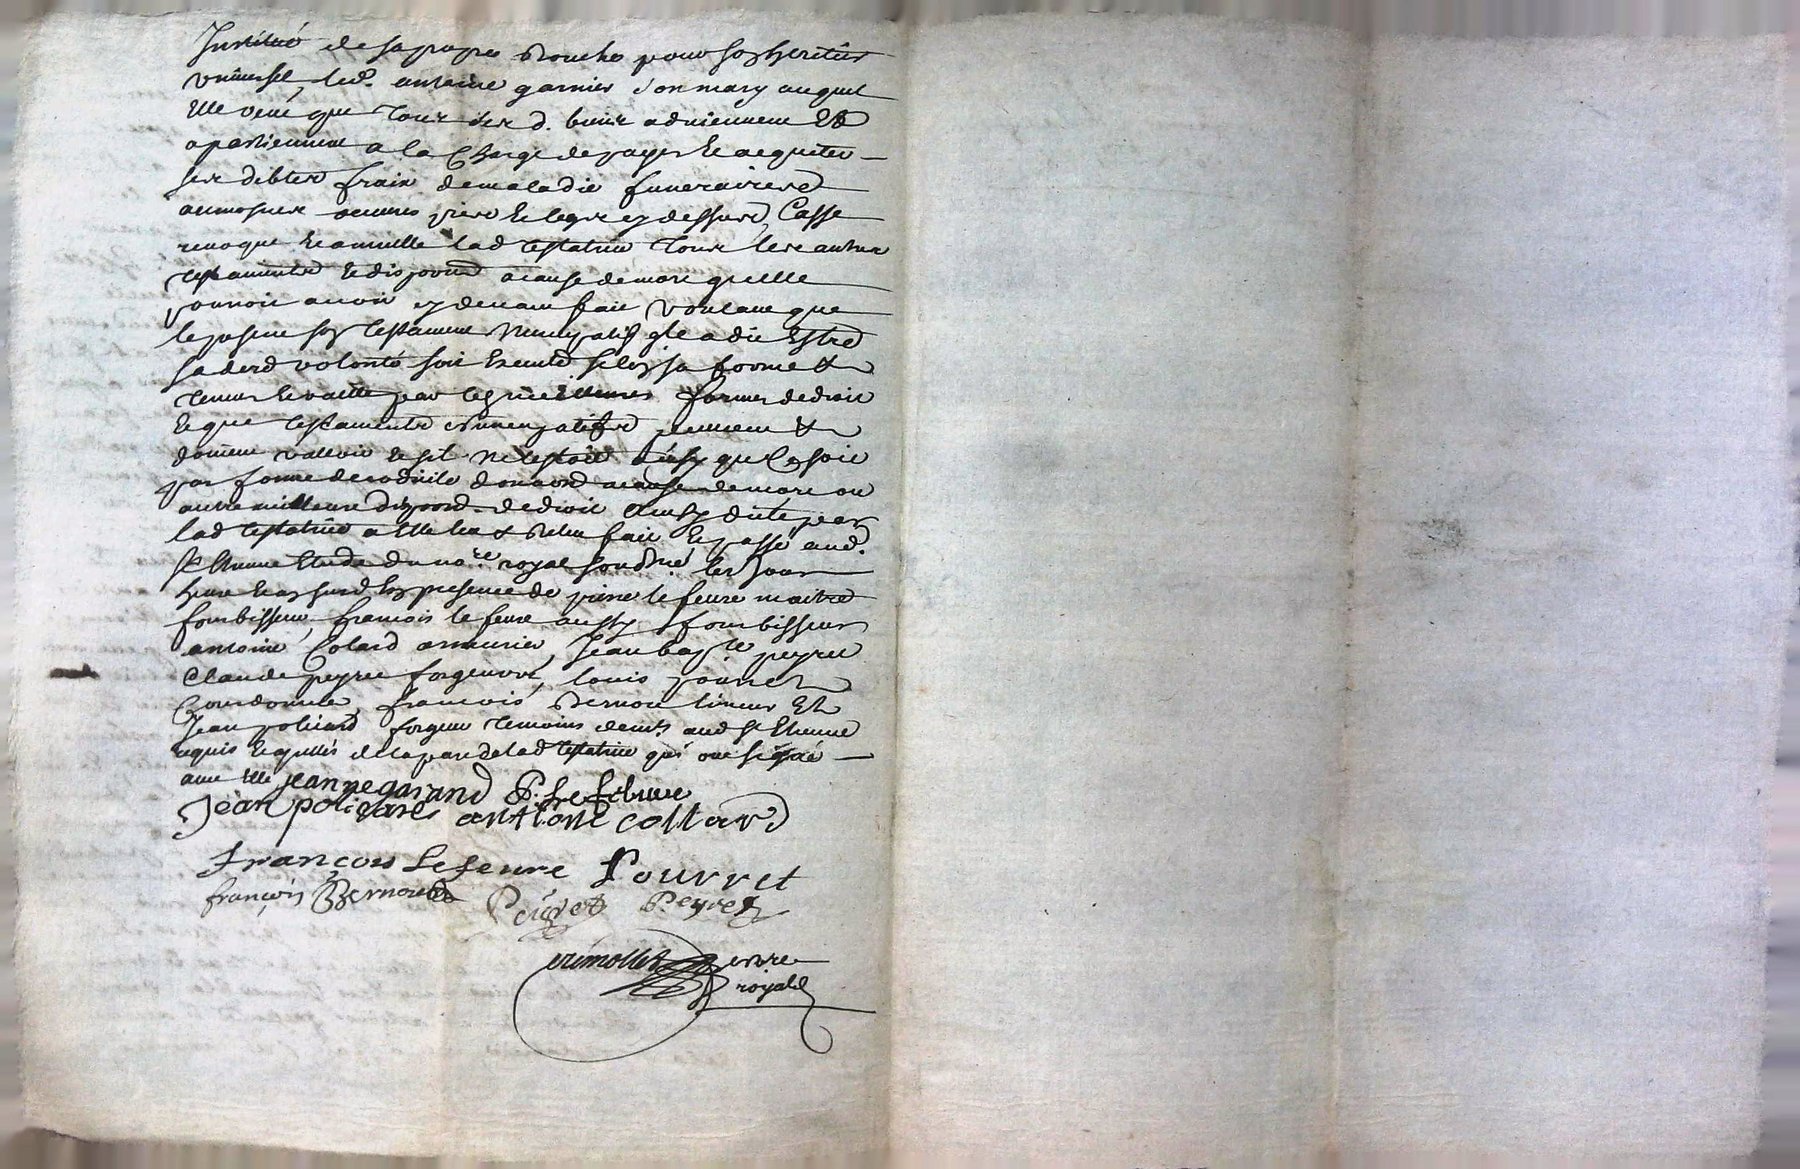 Institué de sa propre bouche pour son heritier
universel, led. antoine garnier son mary auquel
elle veut que tous ses d. biens adviennent et
apartiennent a la charge de payer et acquiter
ses debtes frais de maladie funeraires
aumosnes œuvres pies et legs cy dessus, Casse
revoque et annulle lad testatrice tous les autres
testaments et dispoons a cause de mort quelle
pourroit avoir cy devant fait voulant que
le present son testament nuncupatif qle a dit Estre
sa der volonté soit executé selon sa forme et
teneur et vaille par les meilleures formes de droit
et que testaments nuncupatifs peuvent et
doivent valloir et sil ne lestoit ainsy que ce soit
par forme de codicile donaon a cause de mort ou
autre meilleure dispoon de droit Ainsy dicté par
lad testatrice a elle leu & releu fait et passé aud.
St Etienne Etude du nore royal soussné les jour
heure et an susd en presence de pierre le fevre maitre
fourbisseur, francois le fevre aussy fourbisseur
antoine Colard armurier, Jean bapte peyret
Claude peyret forgeurs, louis pourret
Cordonnier, francois Bernou limeur Et
Jean poliniard forgeur temoins demts aud St Etienne
requis et apellés de la part de lad testatrice qui ont signé
avec elle jeanne garand P. Lefebure
Jean antoine collard
François Lefevre Pourret
françois Bernou
Peyret Peyret
notre
royal